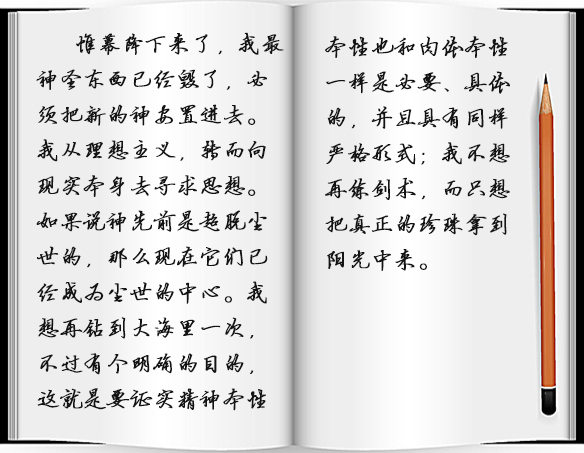 帷幕降下来了，我最
神圣东西已经毁了，必
须把新的神安置进去。
我从理想主义，转而向
现实本身去寻求思想。
如果说神先前是超脱尘
世的，那么现在它们已
经成为尘世的中心。我
想再钻到大海里一次，
不过有个明确的目的，
这就是要证实精神本性
本性也和肉体本性
一样是必要、具体
的，并且具有同样
严格形式；我不想
再练剑术，而只想
把真正的珍珠拿到
阳光中来。